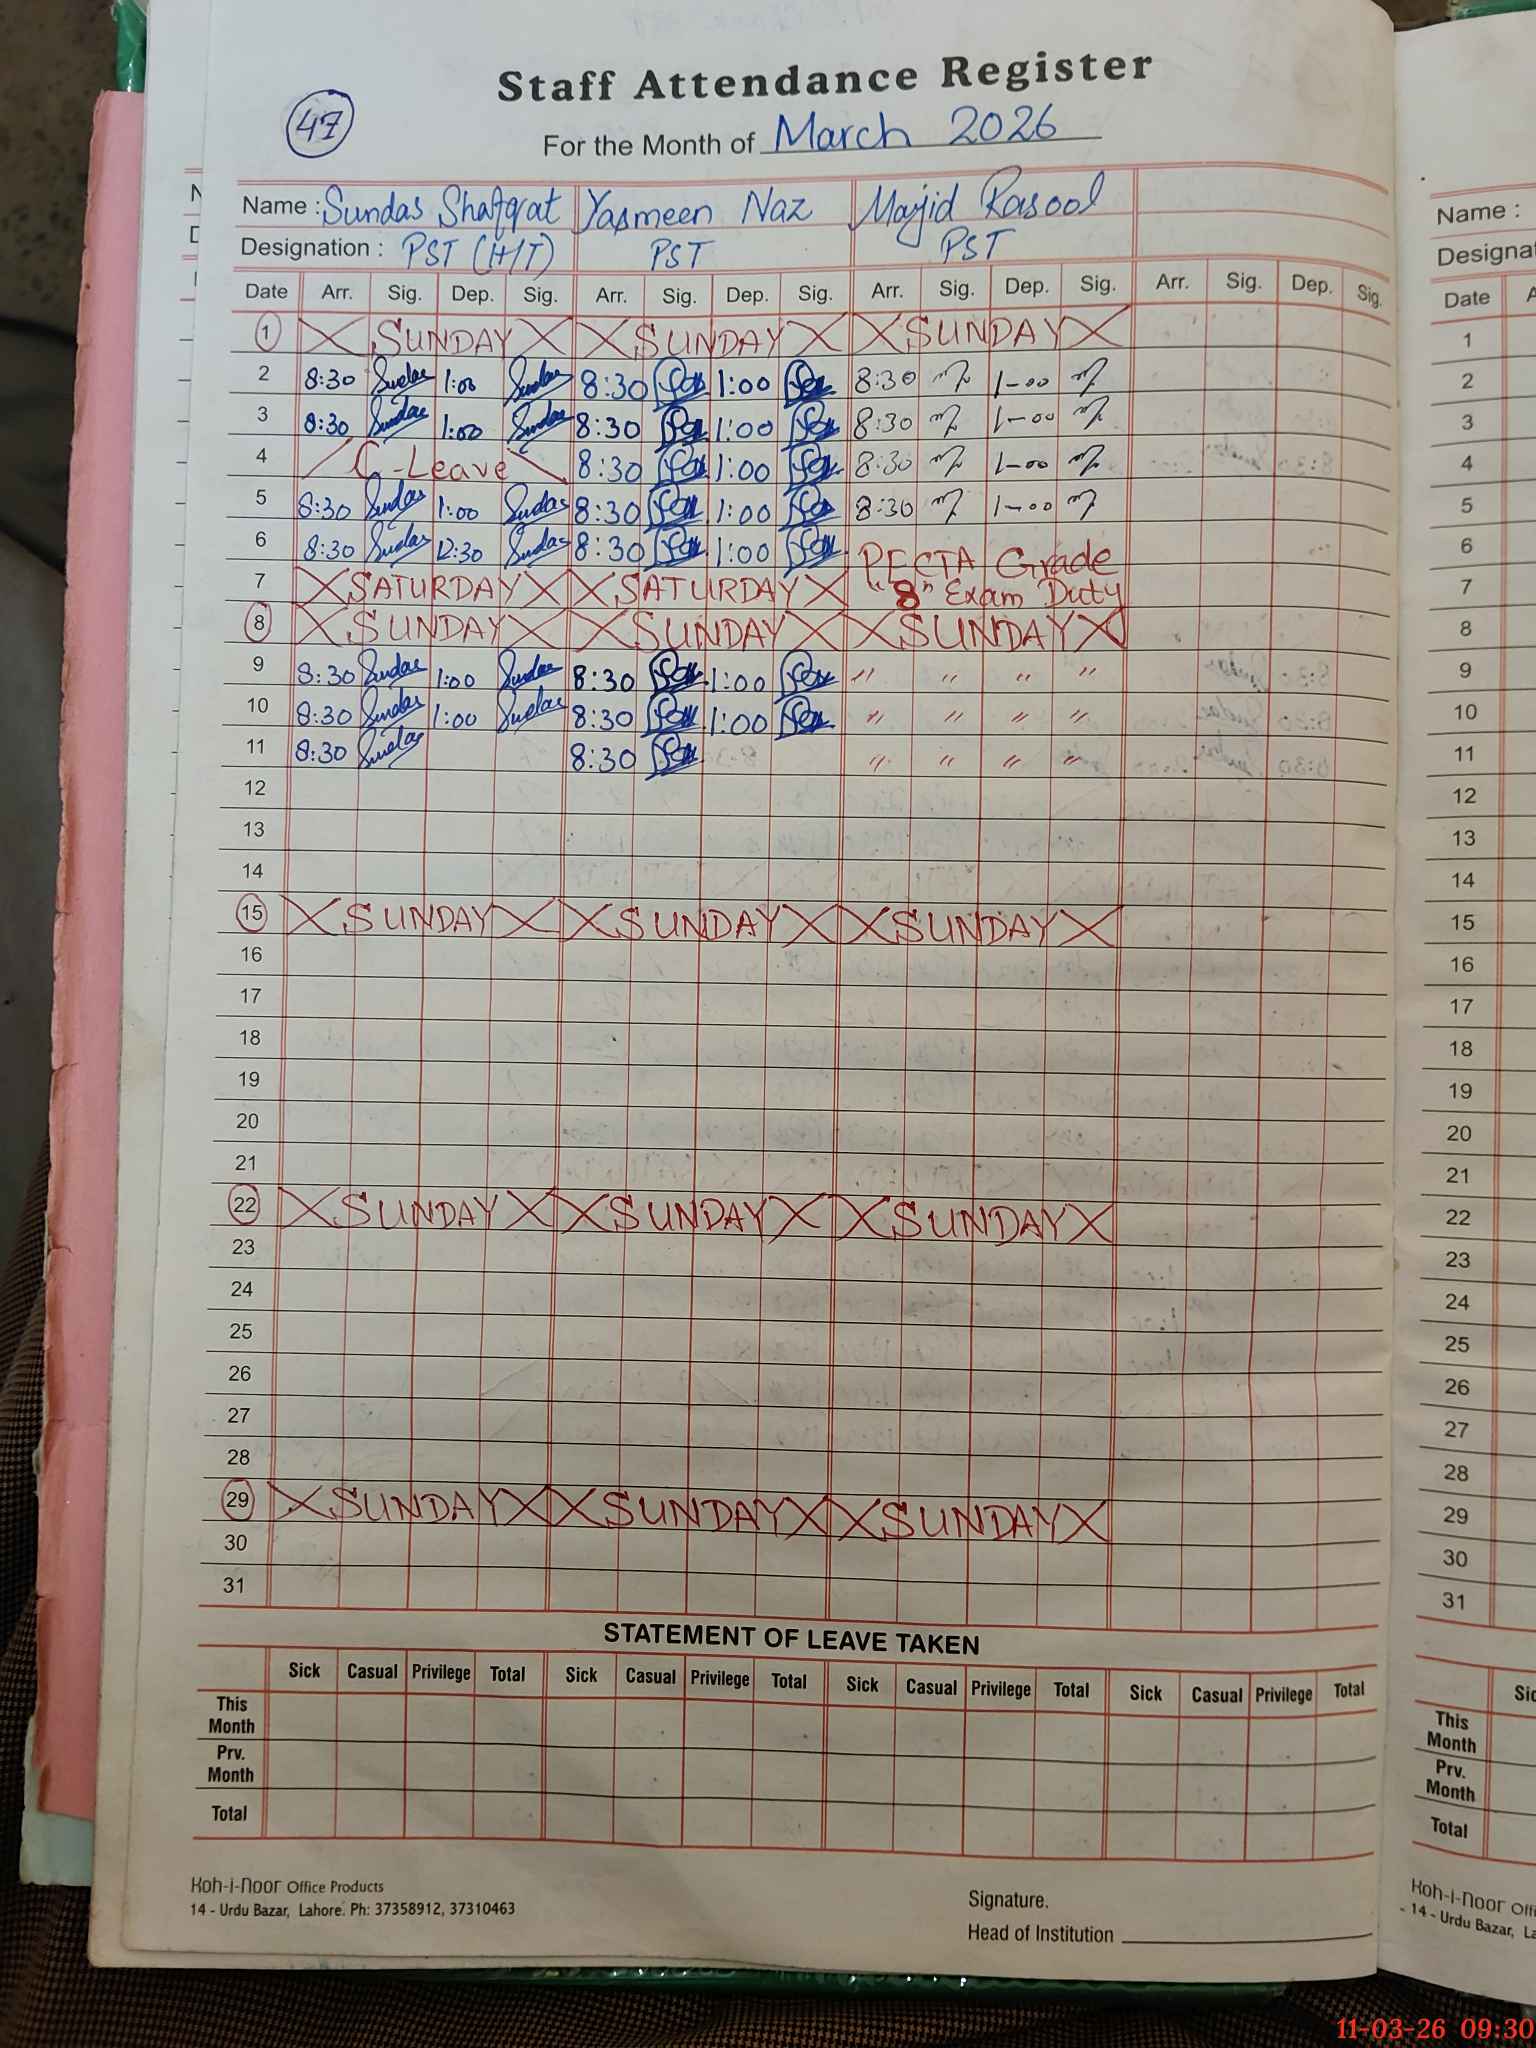 Staff Attendance Register
47
For the Month of March 2026
Name : Sundas Shafqat Yasmeen Naz Majid Rasool
Designation : PST (H/T) PST PST
Date Arr. Sig. Dep. Sig. Arr. Sig. Dep. Sig. Arr. Sig. Dep. Sig. Arr. Sig. Dep. Sig.
1 SUNDAY SUNDAY SUNDAY
2 8:30 Sundas 1:00 Sundas 8:30 1:00 8:30 1-00
3 8:30 Sundas 1:00 Sundas 8:30 1:00 8:30 1-00
4 C-Leave 8:30 1:00 8:30 1-00
5 8:30 Sundas 1:00 Sundas 8:30 1:00 8:30 1-00
6 8:30 Sundas 12:30 Sundas 8:30 1:00 PECTA Grade
7 SATURDAY SATURDAY "8" Exam Duty
8 SUNDAY SUNDAY SUNDAY
9 8:30 Sundas 1:00 Sundas 8:30 1:00 " " " "
10 8:30 Sundas 1:00 Sundas 8:30 1:00 " " " "
11 8:30 Sundas 8:30 " " " "
12
13
14
15 SUNDAY SUNDAY SUNDAY
16
17
18
19
20
21
22 SUNDAY SUNDAY SUNDAY
23
24
25
26
27
28
29 SUNDAY SUNDAY SUNDAY
30
31
STATEMENT OF LEAVE TAKEN
Sick Casual Privilege Total Sick Casual Privilege Total Sick Casual Privilege Total Sick Casual Privilege Total
This Month
Prv. Month
Total
Koh-i-Noor Office Products
14 - Urdu Bazar, Lahore. Ph: 37358912, 37310463
Signature.
Head of Institution
Name :
Date
1
2
3
4
5
6
7
8
9
10
11
12
13
14
15
16
17
18
19
20
21
22
23
24
25
26
27
28
29
30
31
This Month
Prv. Month
Total
Koh-i-Noor
14 - Urdu Bazar,
11-03-26 09:30